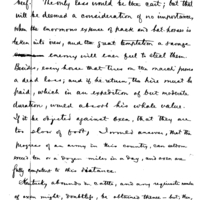 beef. The only loss would be the bait; but that
will be deemed a consideration of no importance,
when the enormous expense of pack and bat horses is
taken into view, and the great temptation a savage
enemy will ever feel to steal them.
Besides, every horse that tires on the march proves
a dead loss; and if he return, the hire must be
paid, which in an expedition of but moderate
duration, would absorb his whole value.
If it be objected against oxen, that they are
too slow of foot, I would answer, that the
progress of an army in this country, can seldom
exceed ten or a dozen miles in a day, and oxen are
fully competent to this distance.
Kentucky abounds in cattle, and any requisite number
of oxen might, doubtless, be obtained there – but, then,